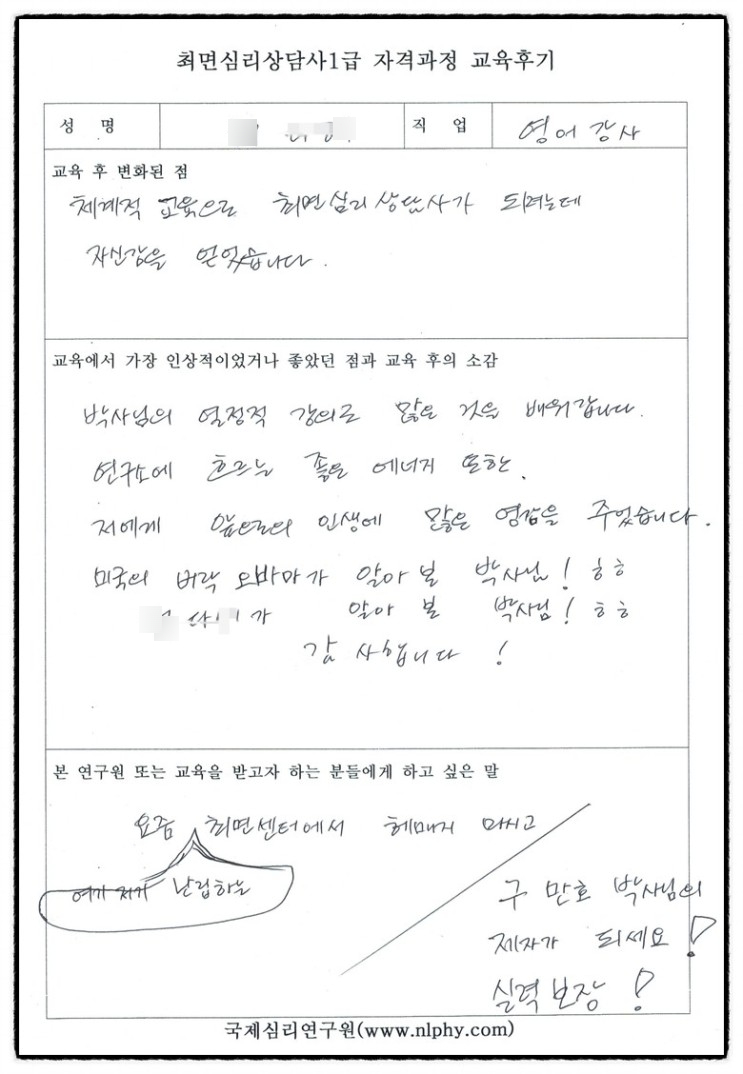 최면심리상담사1급 자격과정 교육후기
성 명 직 업 영어 강사
교육 후 변화된 점
체계적 교육으로 최면심리상담사가 되려는데
자신감을 얻었습니다.
교육에서 가장 인상적이었거나 좋았던 점과 교육 후의 소감
박사님의 열정적 강의로 많은 것을 배워갑니다.
연구소에 흐르는 좋은 에너지 또한.
저에게 앞으로의 인생에 많은 영감을 주었습니다.
미국의 버락 오바마가 알아 볼 박사님! ㅎㅎ
가 알아 볼 박사님! ㅎㅎ
감사합니다!
본 연구원 또는 교육을 받고자 하는 분들에게 하고 싶은 말
요즘 최면센터에서 헤매지 마시고
여기 저기 난립하는
구 만호 박사님의
제자가 되세요!
실력 보장!
국제심리연구원(www.nlphy.com)